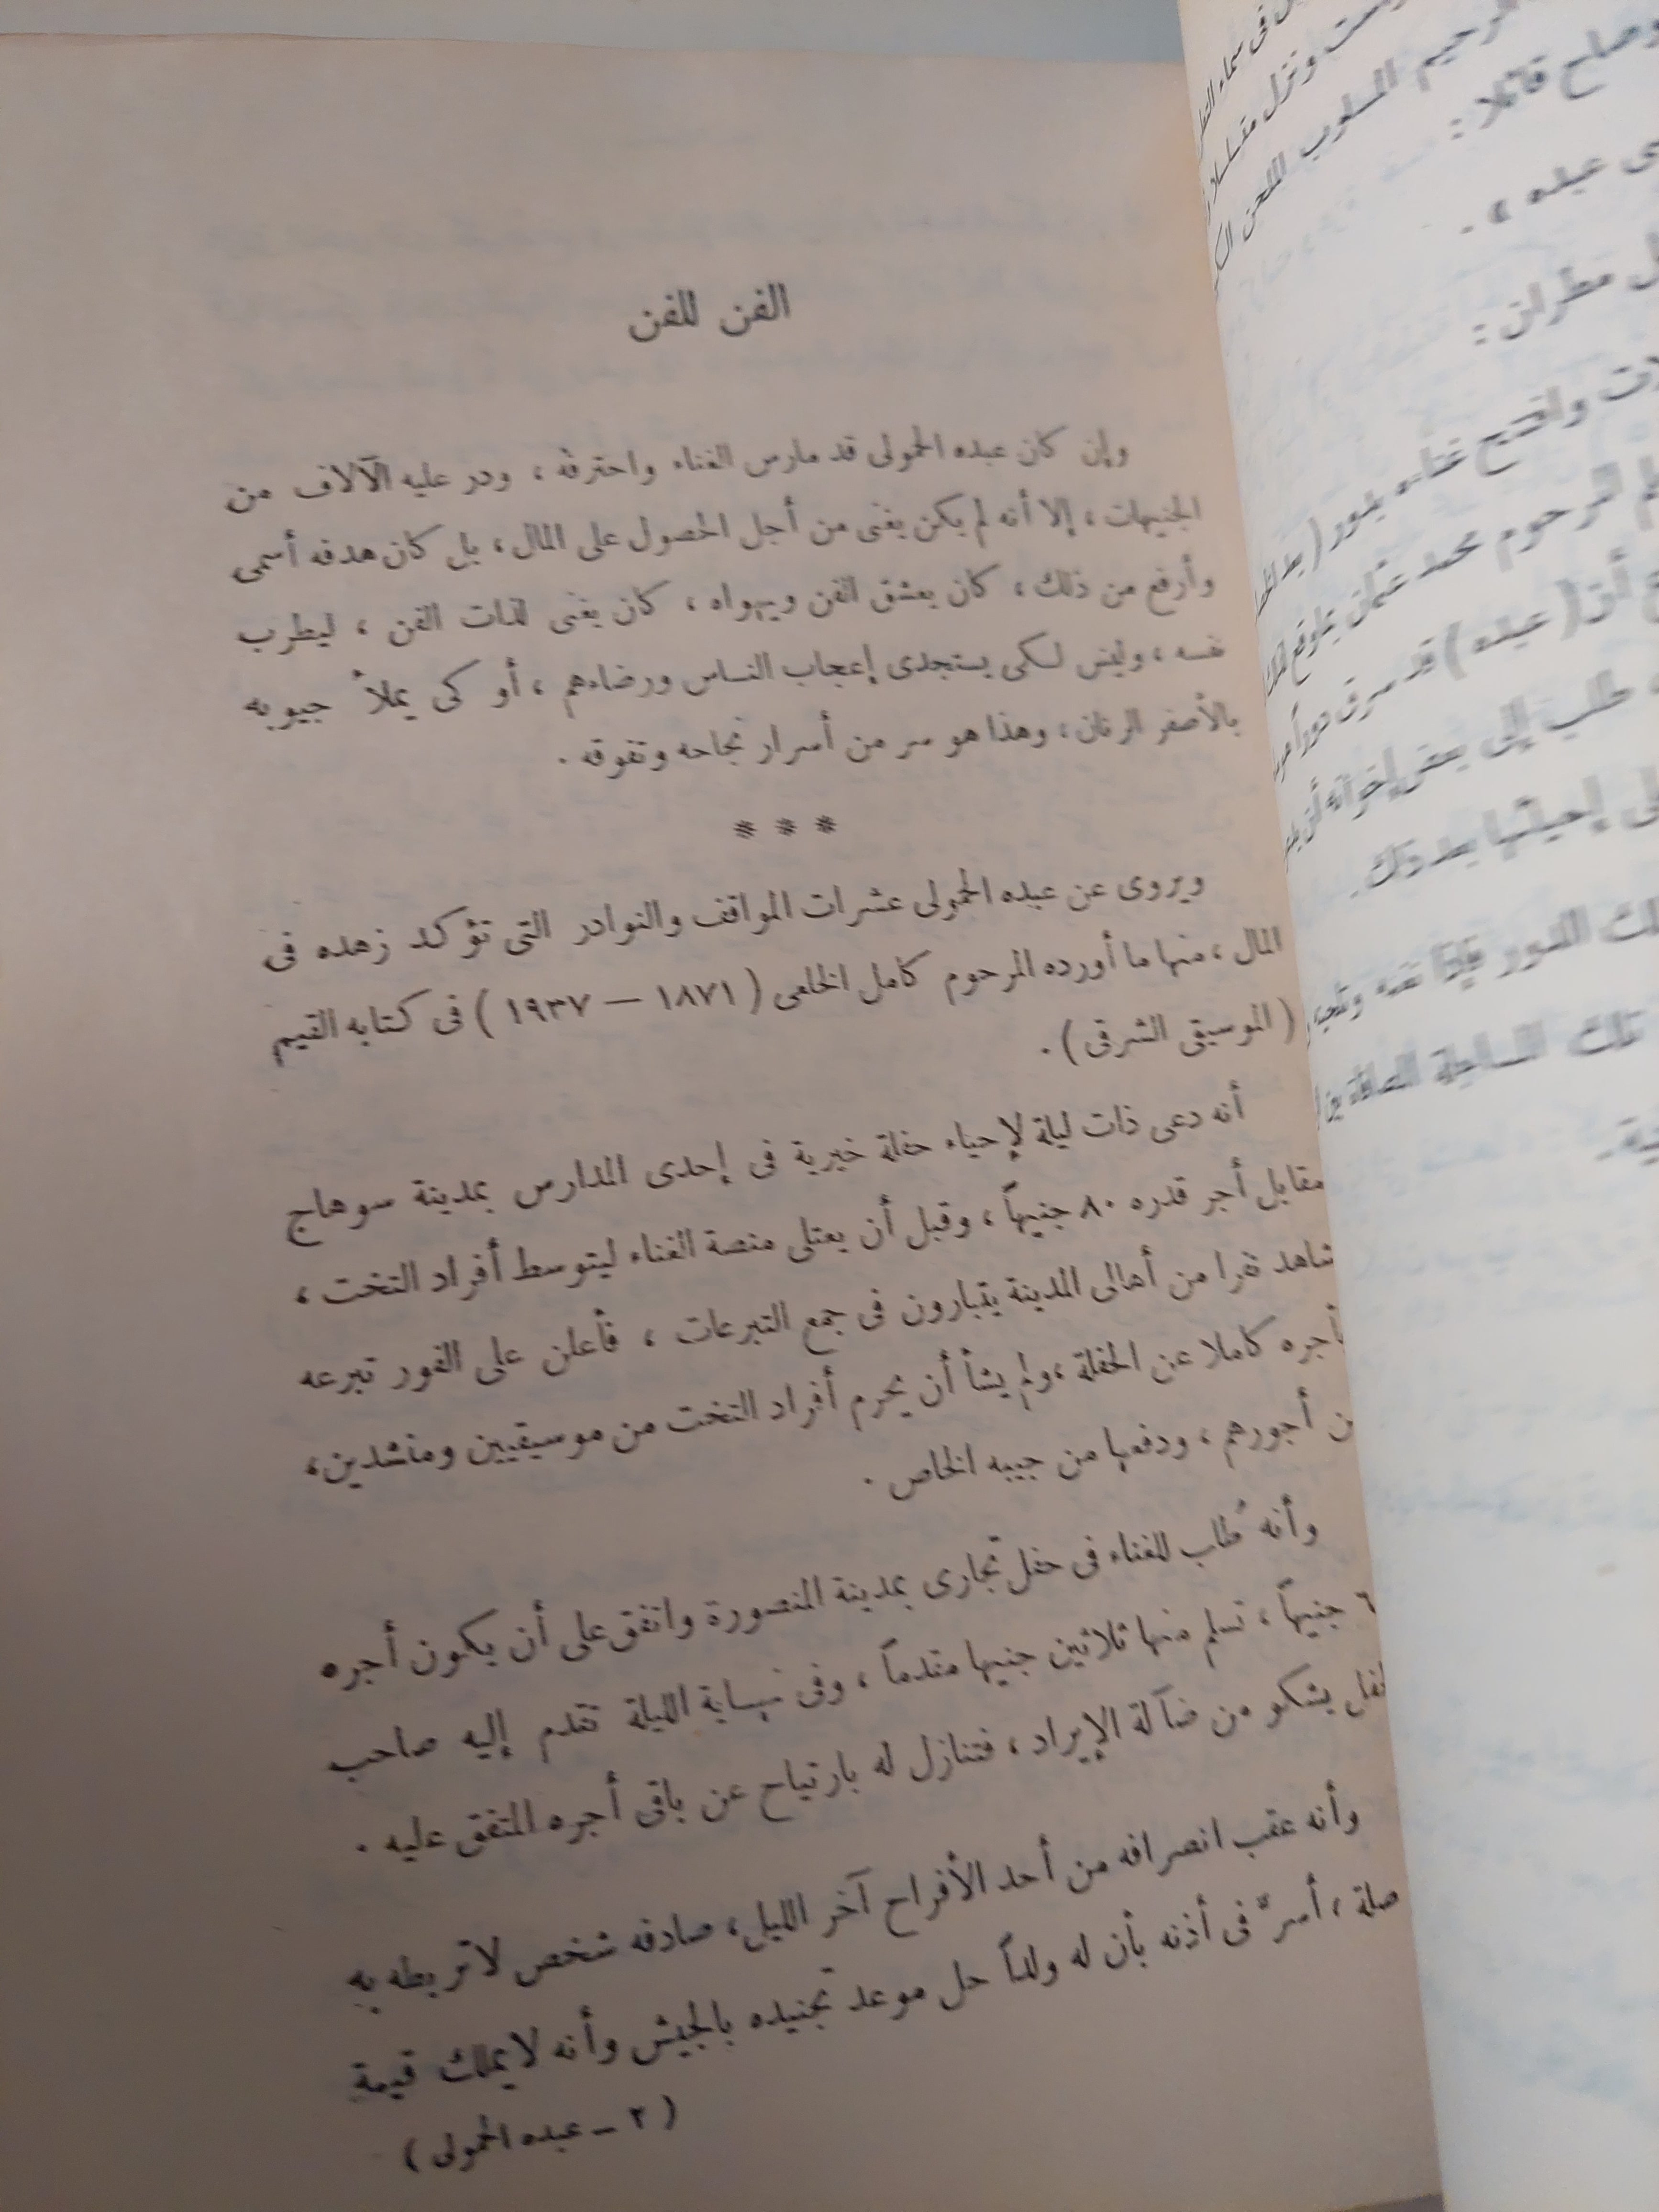 الفن للفن
وإن كان عبده الحمولى قد مارس الغناء واحترفه ، ودر عليه الآلاف من
الجنيهات ، إلا أنه لم يكن يغنى من أجل الحصول على المال ، بل كان هدفه أسمى
وأرفع من ذلك ، كان يعشق الفن ويهواه ، كان يغنى لذات الفن ، ليطرب
نفسه ، وليس لكى يستجدى إعجاب الناس ورضاءهم ، أو كى يملأ جيوبه
بالأصفر الرنان ، وهذا هو سر من أسرار نجاحه وتفوقه .
* * *
ويروى عن عبده الحمولى عشرات المواقف والنوادر التى تؤكد زهده فى
المال ، منها ما أورده المرحوم كامل الخلعى ( ١٨٧١ — ١٩٣٧ ) فى كتابه القيم
( الموسيقى الشرقى ) .
أنه دعى ذات ليلة لإحياء حفلة خيرية فى إحدى المدارس بمدينة سوهاج
مقابل أجر قدره ٨٠ جنيهاً ، وقبل أن يعتلى منصة الغناء ليتوسط أفراد التخت ،
شاهد نفرا من أهالى المدينة يتبارون فى جمع التبرعات ، فأعلن على الفور تبرعه
بأجره كاملا عن الحفلة ، ولم يشأ أن يحرم أفراد التخت من موسيقيين ومنشدين ،
من أجورهم ، ودفعها من جيبه الخاص .
وأنه طُلب للغناء فى حفل تجارى بمدينة المنصورة واتفق على أن يكون أجره
جنيهاً ، تسلم منها ثلاثين جنيها مقدماً ، وفى نهاية الليلة تقدم إليه صاحب
الحفل يشكو من ضآلة الإيراد ، فتنازل له بارتياح عن باقى أجره المتفق عليه .
وأنه عقب انصرافه من أحد الأفراح آخر الليل ، صادفه شخص لا تربطه به
صلة ، أسرّ فى أذنه بأن له ولداً حل موعد تجنيده بالجيش وأنه لا يملك قيمة
( ٢ – عبده الحمولى )
وصاح قائلا :
عبده » .
مطران :
وافتتح غناءه بدور
المرحوم محمد عثمان
أن ( عبده ) قد سرق دوراً
طلب إلى بعض إخوانه أن